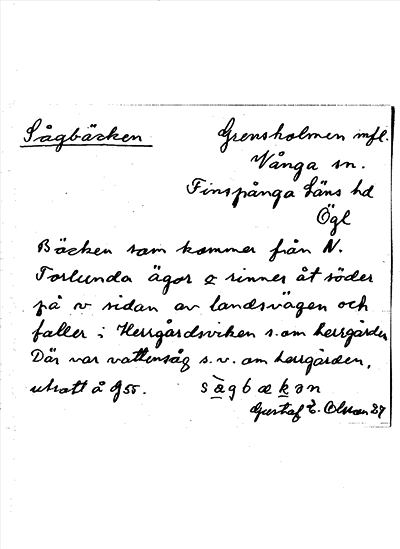 Sågbäcken
Grensholmen mfl.
Vånga sn.
Finspånga Läns hd
Ögl
Bäcken som kommer från N.
Torlunda ägor o rinner åt söder
på v sidan av landsvägen och
faller i Herrgårdsviken s. om herrgården
Där var vattensåg s.v. om herrgården,
utsatt å g55. sàgbækən
Gustaf E. Olsson 27